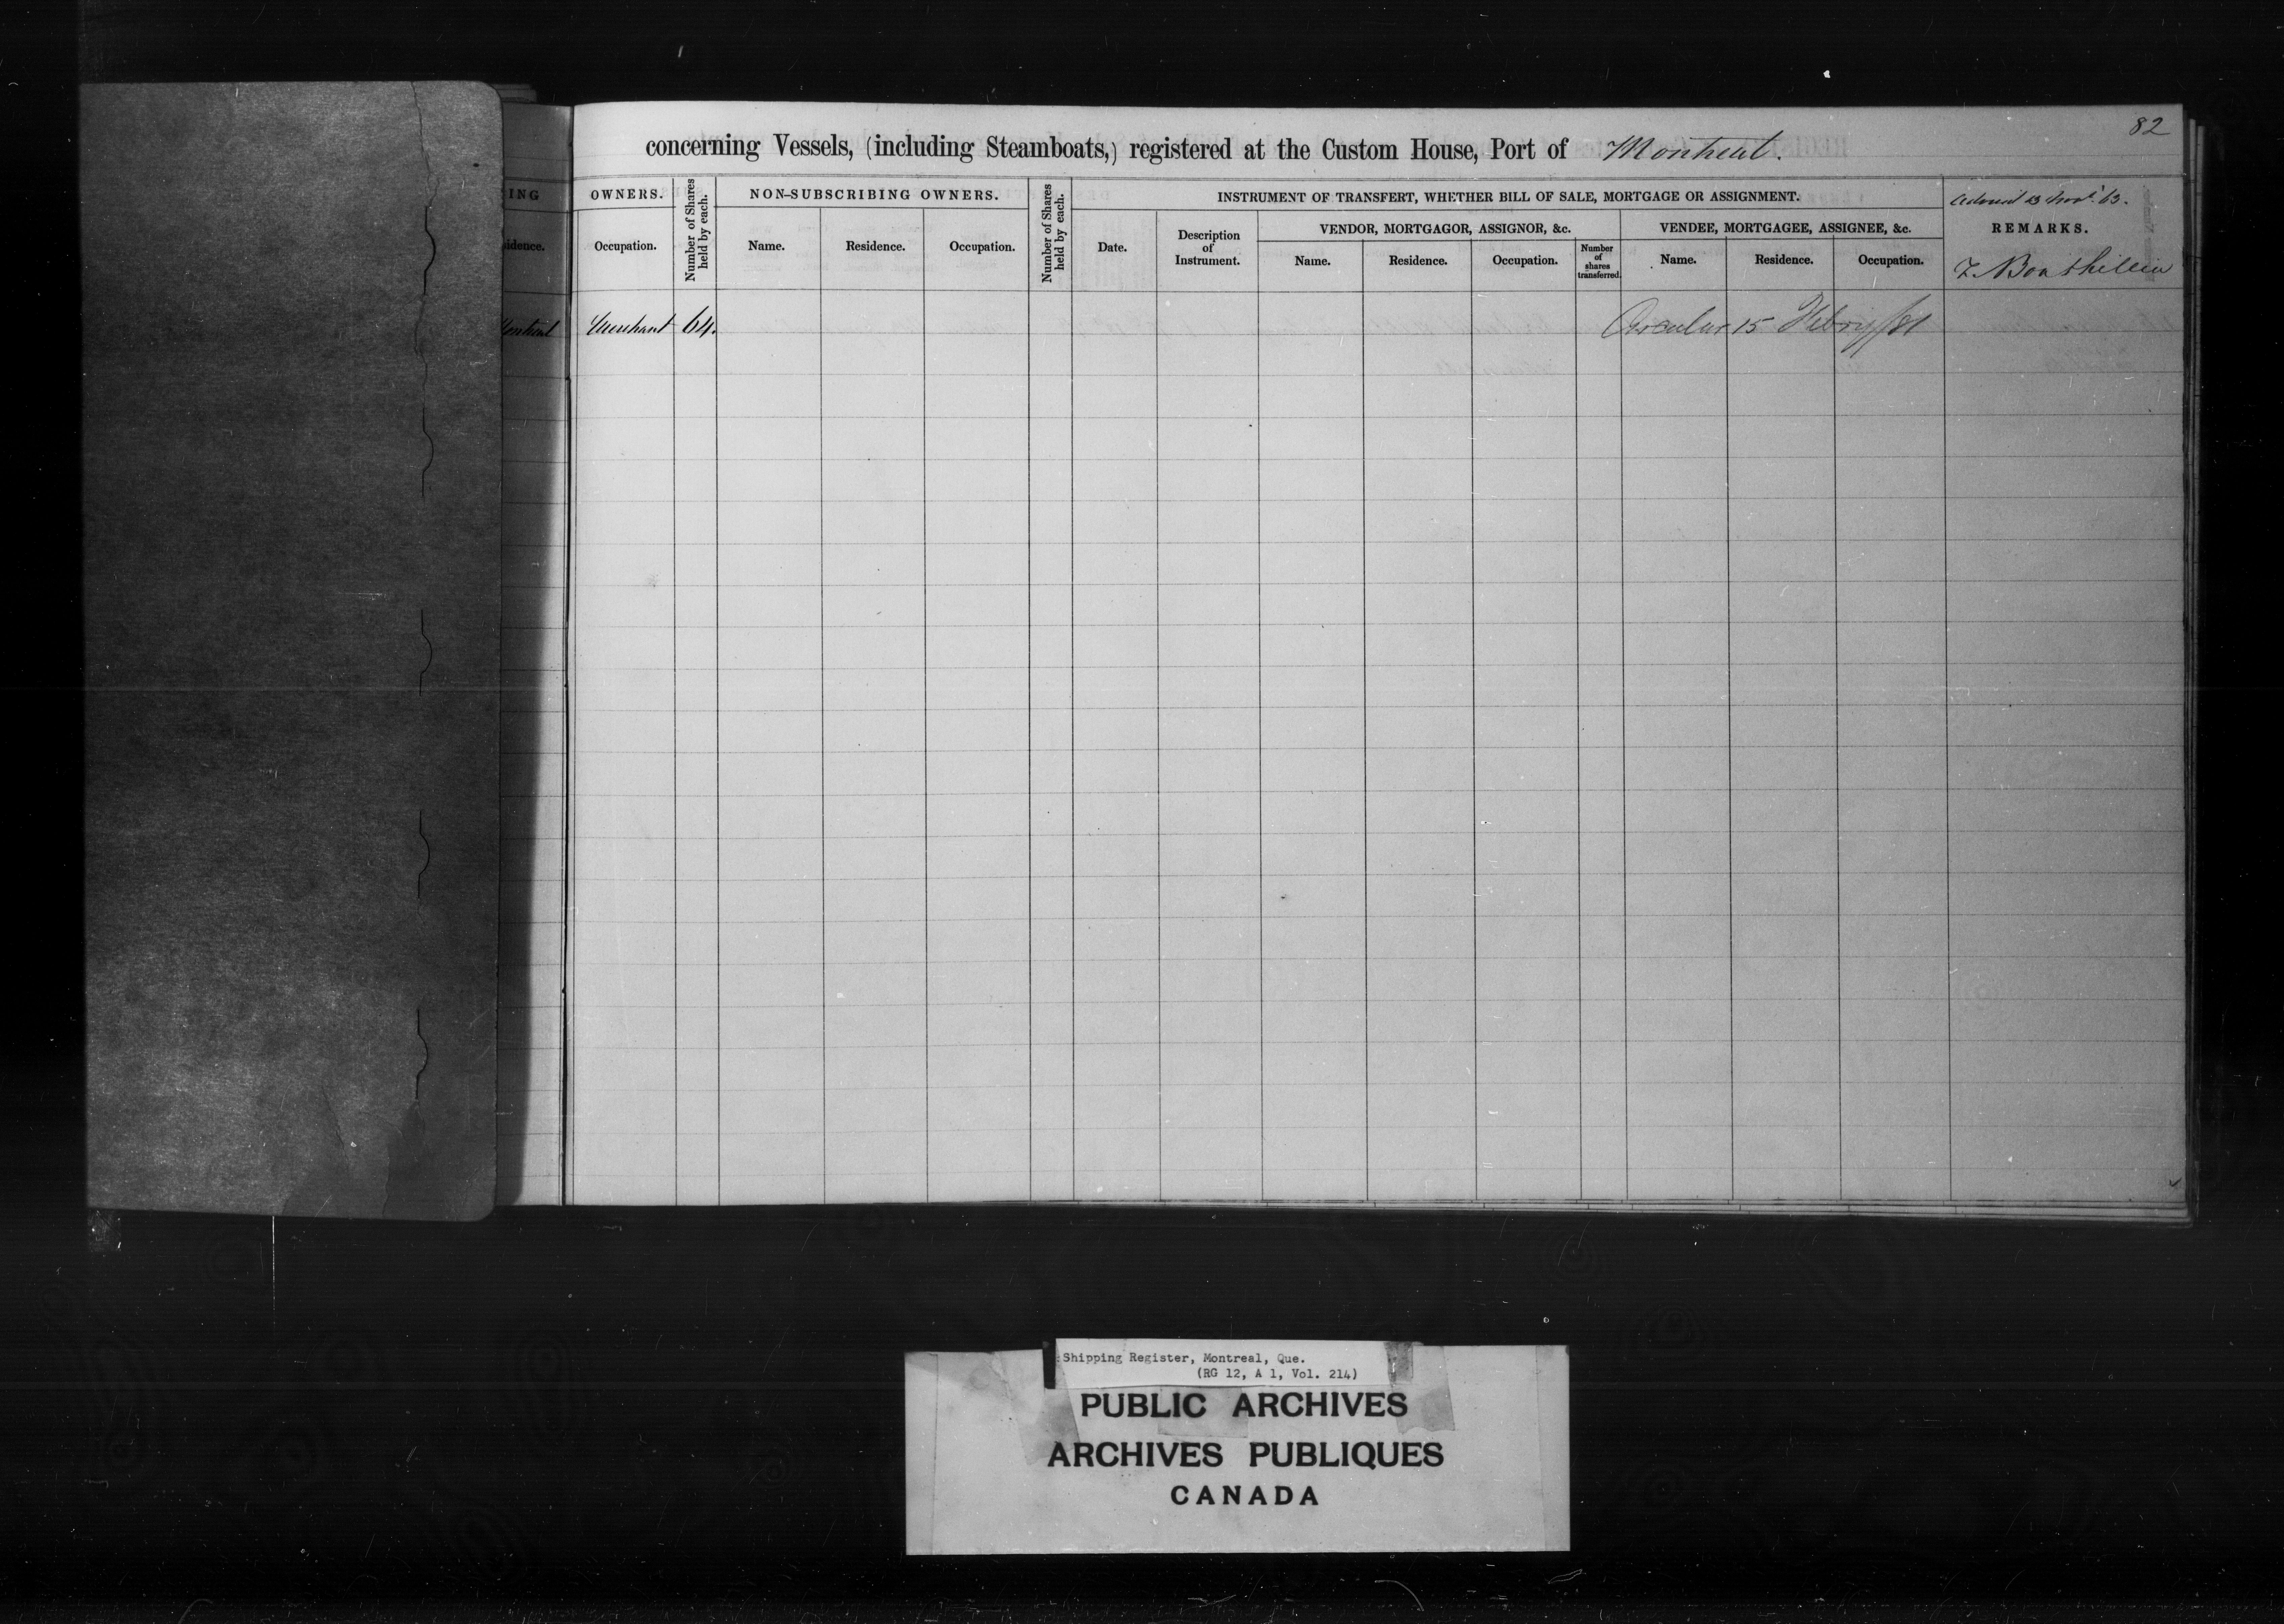 82
concerning Vessels, (including Steamboats,) registered at the Custom House, Port of Montreal.
ING OWNERS. Number of Shares held by each. NON-SUBSCRIBING OWNERS. Number of Shares held by each. INSTRUMENT OF TRANSFERT, WHETHER BILL OF SALE, MORTGAGE OR ASSIGNMENT.
23 Novr. 63.
VENDOR, MORTGAGOR, ASSIGNOR, &c. VENDEE, MORTGAGEE, ASSIGNEE, &c. REMARKS.
sidence. Occupation. Name. Residence. Occupation. Date. Description of Instrument. Name. Residence. Occupation. Number of shares transferred. Name. Residence. Occupation.
Montreal Merchant 64. Circular 15 Febry/81
Shipping Register, Montreal, Que.
(RG 12, A 1, Vol. 214)
PUBLIC ARCHIVES
ARCHIVES PUBLIQUES
CANADA